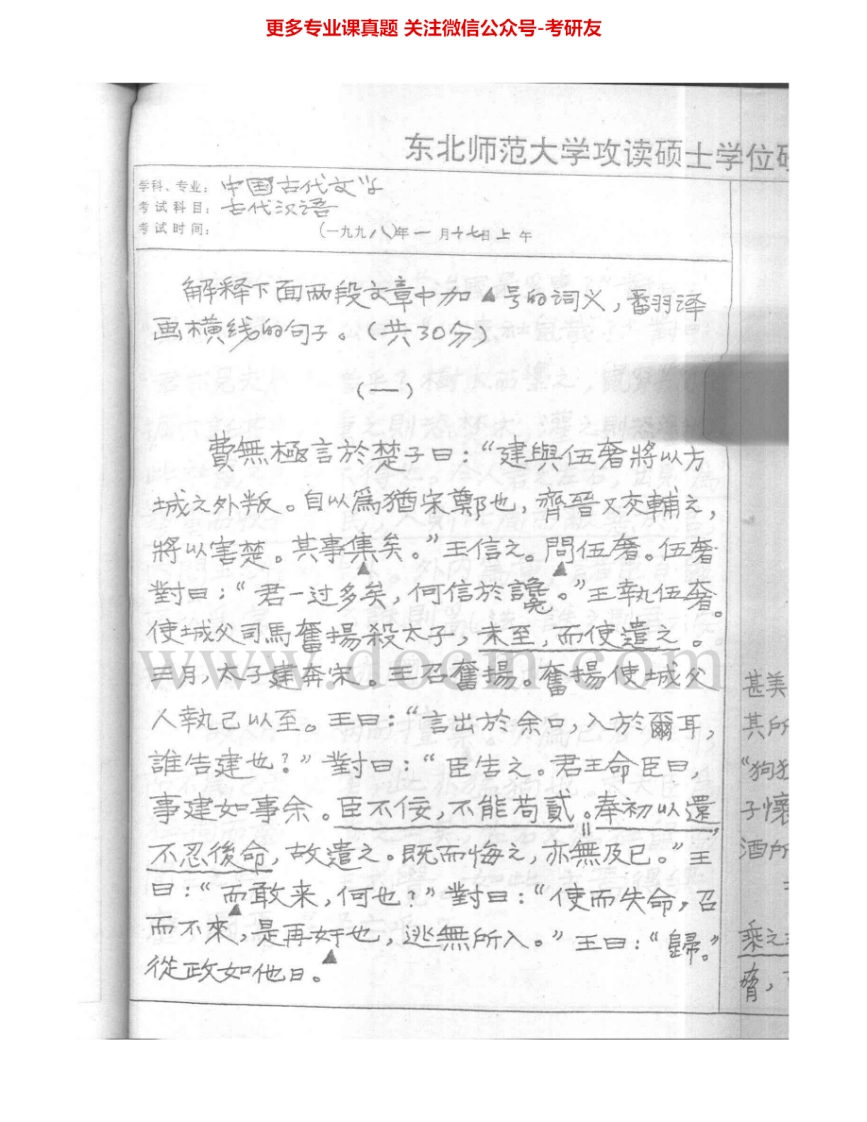 更多专业课真题 关注微信公众号-考研友
东北师范大学攻读硕士学位研
学科、专业：中国古代文学
考试科目：古代汉语
考试时间：（一九九八）年一月十七日上午
解释下面两段文章中加▲号的词义，翻译
画横线的句子。（共30分）
（一）
費無極言於楚子曰：“建與伍奢將以方
城之外叛。自以爲猶宋鄭也，齊晉又交輔之，
將以害楚。其事集矣。”王信之。問伍奢。伍奢
對曰：“君一过多矣，何信於讒。”王執伍奢。
使城父司馬奮揚殺太子，未至，而使遣之。
三月，太子建奔宋。王召奮揚。奮揚使城父
人執己以至。王曰：“言出於余口，入於爾耳，
誰告建也？”對曰：“臣告之。君王命臣曰，
事建如事余。臣不佞，不能苟貳。奉初以還，
不忍後命，故遣之。既而悔之，亦無及已。”王
曰：“而敢来，何也？”對曰：“使而失命，召
而不來，是再奸也，逃無所入。”王曰：“歸。”
從政如他日。
甚美
其所
“狗
子懷
酒所
乘之
脅，
www.docin.com